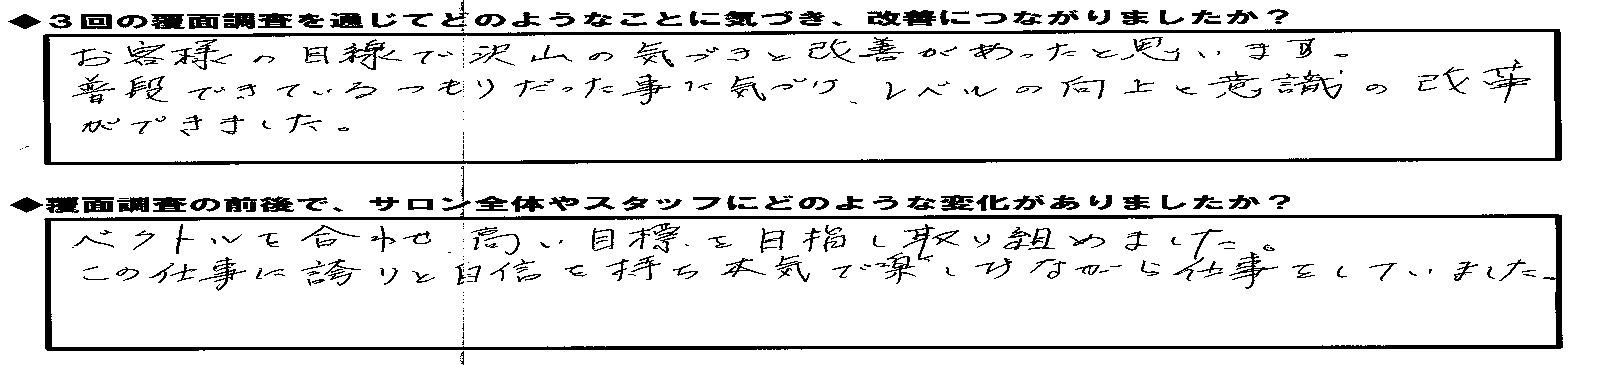 ◆3回の覆面調査を通じてどのようなことに気づき、改善につながりましたか？
お客様の目線で沢山の気づきと改善があったと思います。
普段できているつもりだった事に気づけ、レベルの向上と意識の改革
ができました。
◆覆面調査の前後で、サロン全体やスタッフにどのような変化がありましたか？
ベクトルを合わせ、高い目標を目指し取り組めました。
この仕事に誇りと自信を持ち本気で楽しみながら仕事をしていました。